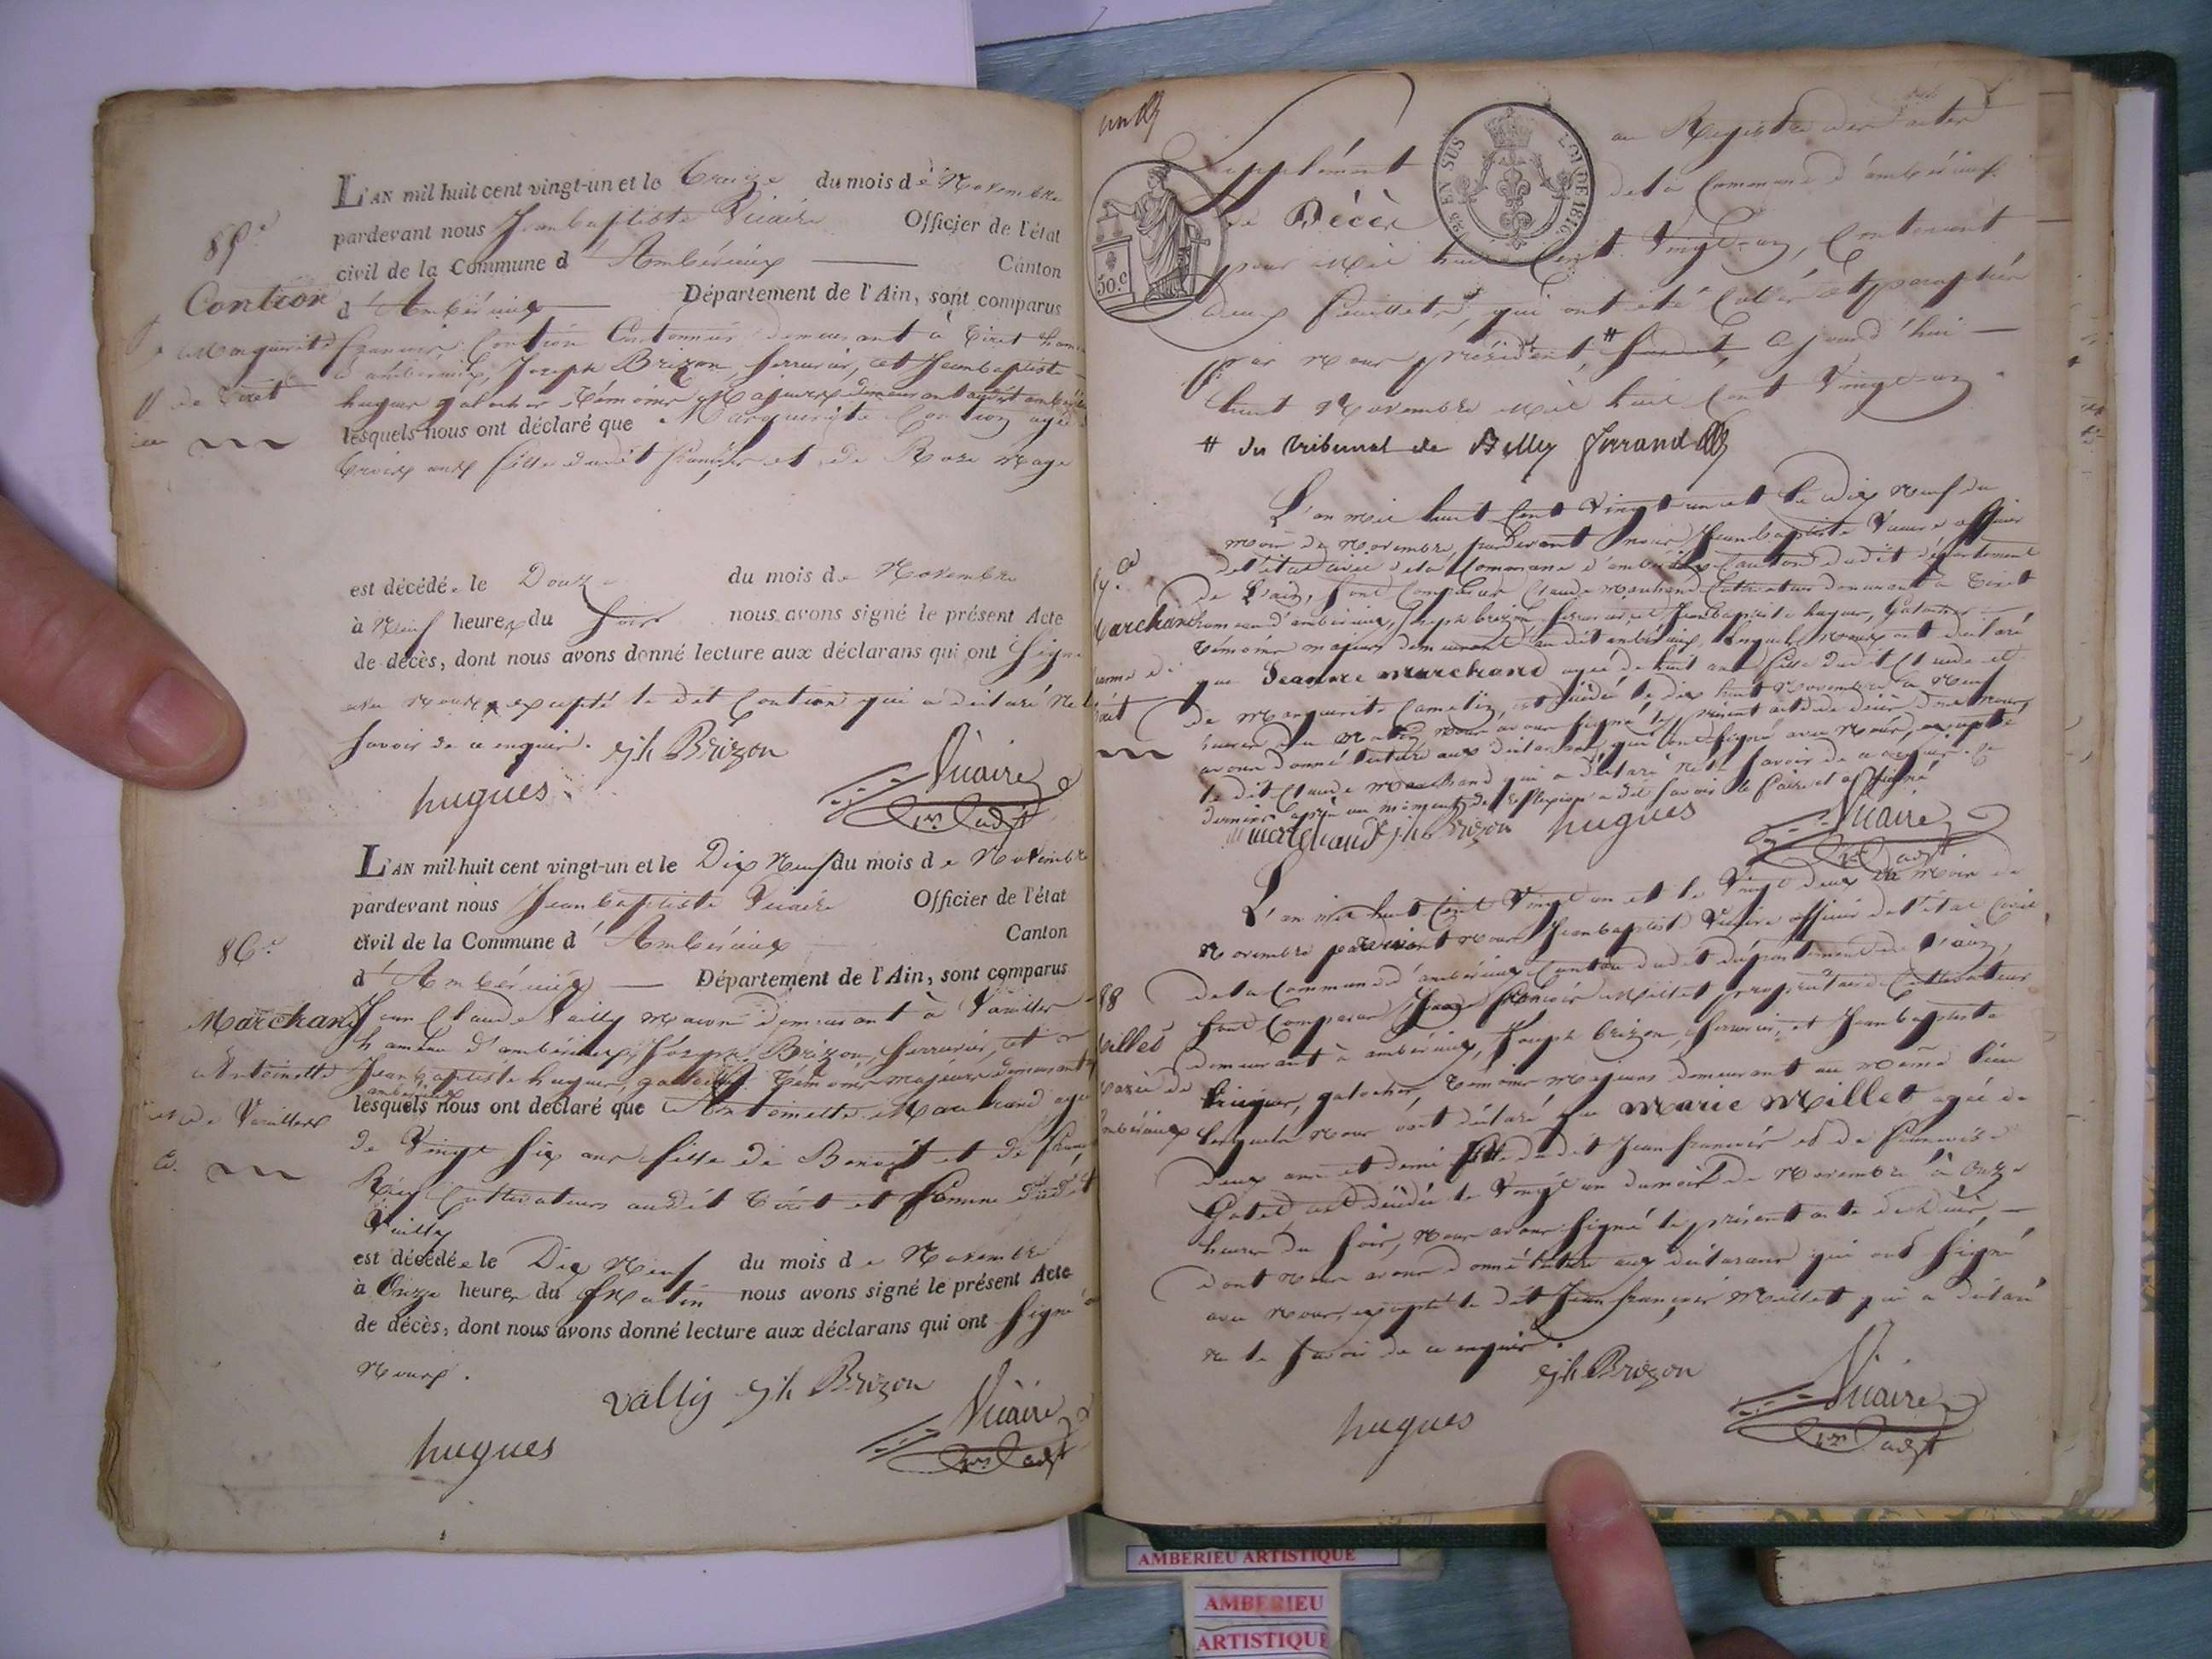 85e
Contion
Marguerite
de Tiret
L'AN mil huit cent vingt-un et le Treize du mois de Novembre
pardevant nous Jeanbaptiste Vicaire Officier de l'état
civil de la Commune d'Ambérieux Canton
d'Ambérieux Département de l'Ain, sont comparus
françois Contion demeurant à Tiret
d'ambérieux, Joseph Brizon, serrurier, et Jeanbaptiste
hugues galocher témoins Majeurs demeurant audit
lesquels nous ont déclaré que Marguerite Contion agée
Trois ans fille dudit françois et de Rose Mage
est décédée le Douze du mois de Novembre
à Neuf heures du soir nous avons signé le présent Acte
de décès, dont nous avons donné lecture aux déclarans qui ont signé
avec nous excepté le dit Contion qui a déclaré ne le
savoir de ce enquis. Jh Brizon
hugues Vicaire
1er adjt
86e
Marchand
Antoinette
de Vareilles
L'AN mil huit cent vingt-un et le Dix Neuf du mois de Novembre
pardevant nous Jeanbaptiste Vicaire Officier de l'état
civil de la Commune d'Ambérieux Canton
d'Ambérieux Département de l'Ain, sont comparus
Jean Claude Vailly Macon demeurant à Vareilles
hameau d'ambérieux, Joseph Brizon, serrurier, et
Jeanbaptiste hugues, galocher témoins majeurs demeurant
lesquels nous ont déclaré que Antoinette Marchand agée
de Vingt six ans fille de Benoit et de
Cultivateurs audit Tiret et femme dudit
Vailly
est décédée le Dix Neuf du mois de Novembre
à Onze heures du Matin nous avons signé le présent Acte
de décès, dont nous avons donné lecture aux déclarans qui ont signé
nous.
vally Jh Brizon Vicaire
hugues 1er adjt
Supplément au Registre des actes
de Décès de la Commune d'ambérieux
pour Mil huit Cent Vingt-un, Contenant
deux feuillets, qui ont été Cotés et paraphés
par Nous président, # aujourd'hui
huit Novembre Mil huit Cent Vingt-un
# du tribunal de Belley
50.c
25 EN SUS
LOI DE 1816
L'an mil huit Cent Vingt-un et le dix Neuf du
mois de Novembre, pardevant nous Jeanbaptiste Vicaire officier
de l'état civil de la Commune d'ambérieux Canton dudit département
de l'ain, sont Comparus Claude Marchand Cultivateur demeurant à Tiret
hameau d'ambérieux, Joseph brizon serrurier et Jeanbaptiste hugues, Galocher
témoins majeurs demeurant audit ambérieux, lesquels nous ont déclaré
que Jeanne Marchand agée de huit ans fille dudit Claude et
de Marguerite est décédée le dix huit Novembre à Neuf
heures du Matin nous avons signé le présent acte de décès dont nous
avons donné lecture aux déclarans, qui ont signé avec Nous, excepté
le dit Claude Marchand qui a déclaré ne le savoir de ce enquis. Ce
dernier après un moment de reflexion a dit savoir le faire et a signé
Marchand Jh Brizon hugues Vicaire
1er adjt
Marchand
L'an mil huit Cent Vingt un et le Vingt deux du Mois de
Novembre pardevant Nous Jeanbaptiste Vicaire officier de l'état Civil
de la Commune d'ambérieux Canton dudit département de l'ain,
sont Comparus Jean françois Millet propriétaire Cultivateur
demeurant à ambérieux, Joseph brizon, serrurier, et Jeanbaptiste
hugues, galocher, témoins Majeurs demeurant au même lieu
lesquels Nous ont déclaré que Marie Millet agée de
deux ans et demi fille dudit Jean françois et de françoise
est décédée le Vingt un du mois de Novembre à Onze
heures du soir, Nous avons signé le présent acte de Décès
dont Nous avons donné lecture aux déclarans qui ont signé
avec Nous, excepté le dit Jean françois Millet qui a déclaré
ne le savoir de ce enquis.
88
Jh Brizon
hugues Vicaire
1er adjt
AMBERIEU ARTISTIQUE
AMBERIEU
ARTISTIQUE